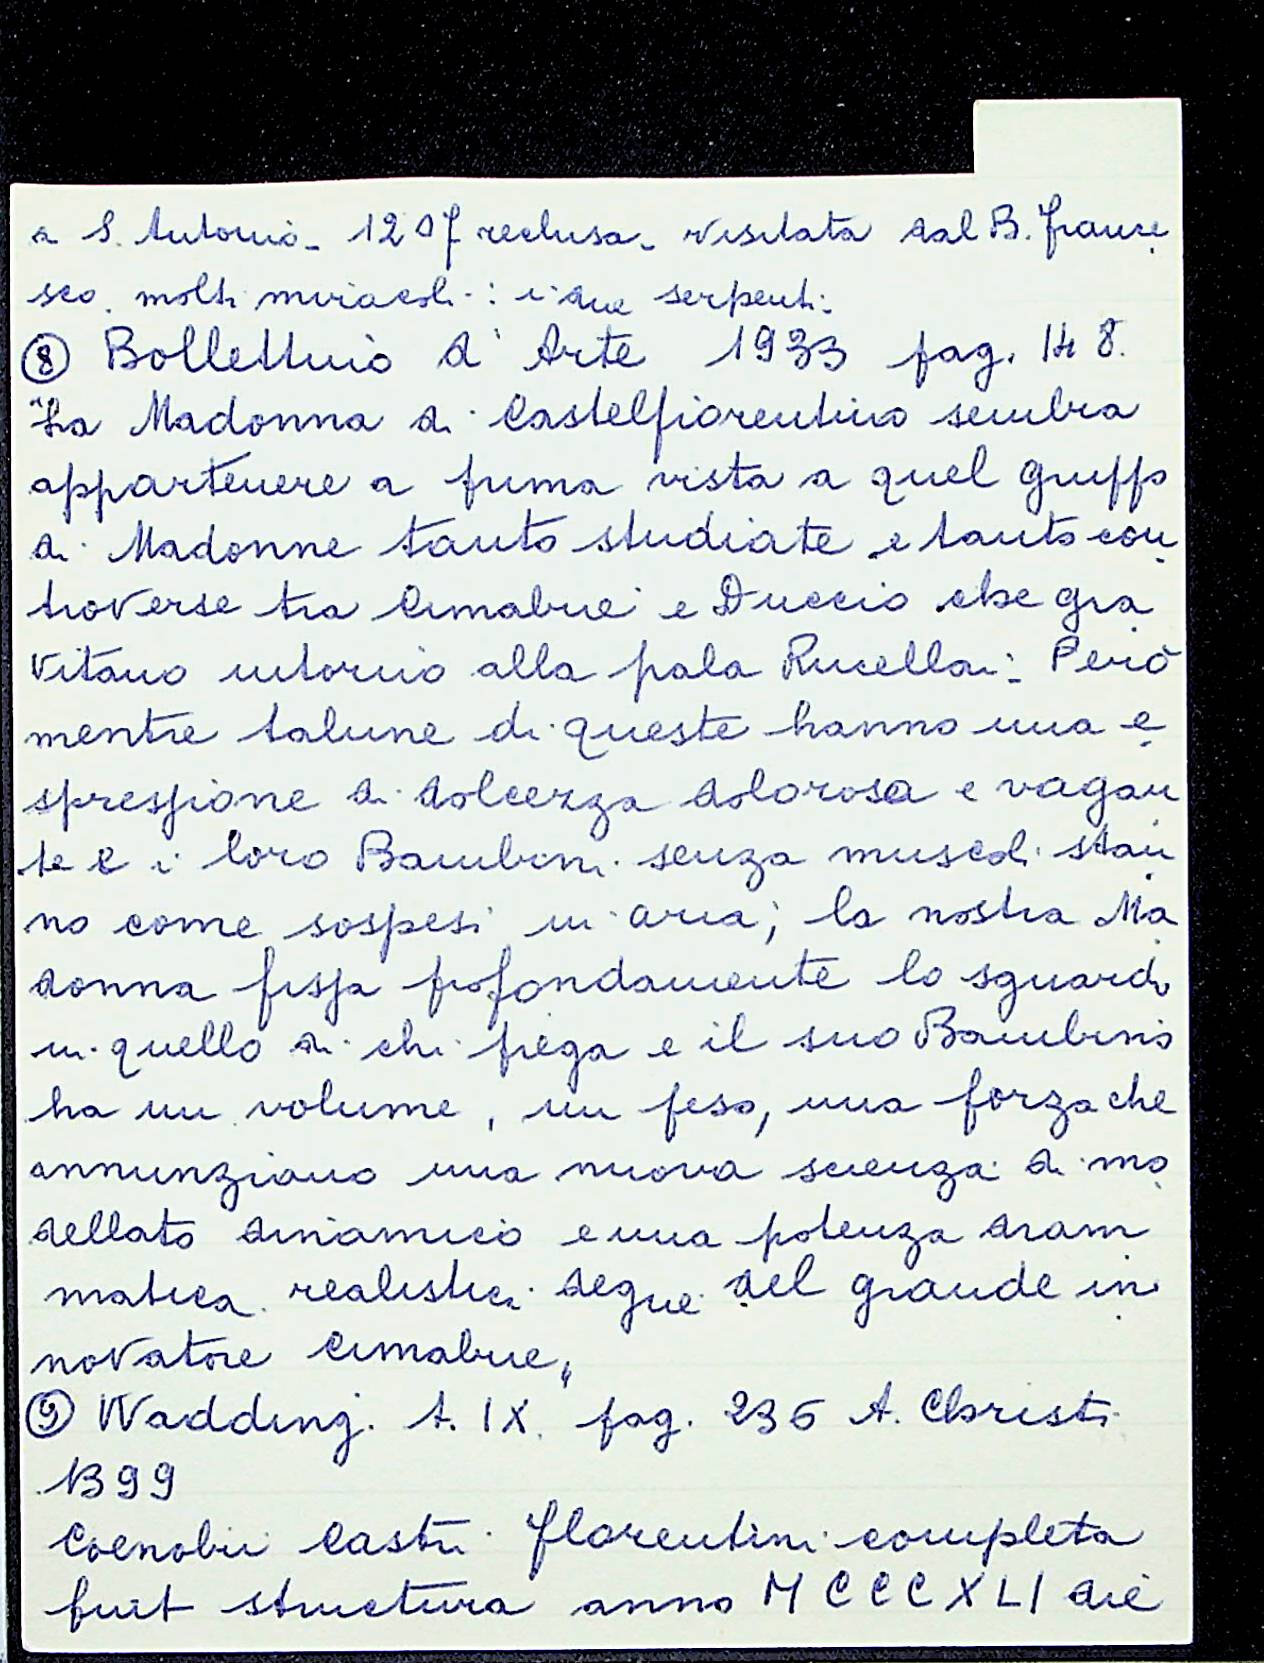 a S. Antonio - 1207 reclusa - visitata dal B. France
sco. molti miracoli : i due serpenti.
⑧ Bollettino d' Arte 1933 pag. 148.
"La Madonna di Castelfiorentino sembra
appartenere a prima vista a quel gruppo
di Madonne tanto studiate e tanto con
troverse tra Cimabue e Duccio che gra
vitano intorno alla pala Rucellai. Però
mentre talune di queste hanno una e
spressione di dolcezza dolorosa e vagan
te e i loro Bambini senza muscoli stan
no come sospesi in aria; la nostra Ma
donna fissa profondamente lo sguardo
in quello di chi prega e il suo Bambino
ha un volume, un peso, una forza che
annunziano una nuova scienza di mo
dellato dinamico e una potenza dram
matica realistici degne del grande in
novatore Cimabue"
⑨ Wadding. t. IX. pag. 236 A. Christi
1399
Coenobii Castri Florentini completa
fuit structura anno MCCCXLI die